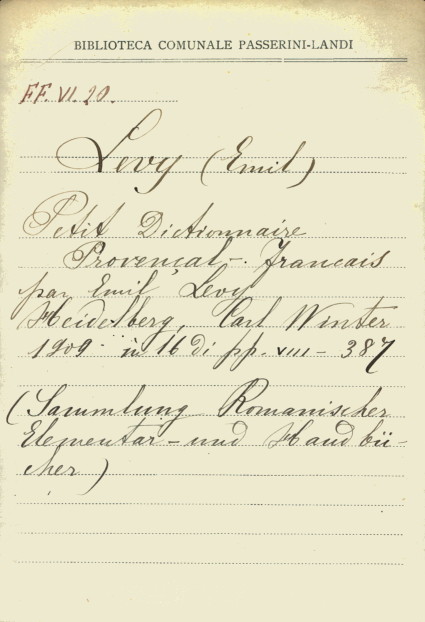 BIBLIOTECA COMUNALE PASSERINI-LANDI
FF. VI. 20.
Levy (Emil)
Petit Dictionnaire
Provençal - Francais
par Emil Levy
Heidelberg, Carl Winter
1909 in 16 di pp. VIII - 387
(Sammlung Romanischer
Elementar - und Handbü-
cher)